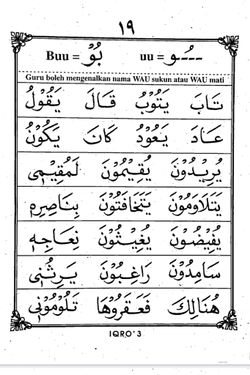 ١٩
Buu = بُوْ   uu = ــُـو
Guru boleh mengenalkan nama WAU sukun atau WAU mati
تَابَ يَتُوْبُ قَالَ يَقُوْلُ
عَادَ يَعُوْدُ كَانَ يَكُوْنُ
يُرِيْدُوْنَ يُقِيْمُوْنَ لَمُقِيْمِيْ
يَتَلَاوَمُوْنَ يَتَخَافَتُوْنَ بِنَاصِرِهِ
يُفِيْضُوْنَ يُغِيْثُوْنَ نِعَاجِهِ
سَامِدُوْنَ رَاغِبُوْنَ يَرِثُنِيْ
هُنَالِكَ فَعَقَرُوْهَا تَلُوْمُوْنِيْ
IQRO'3